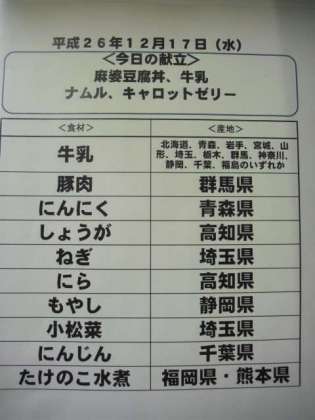 平成26年12月17日（水）
＜今日の献立＞
麻婆豆腐丼、牛乳
ナムル、キャロットゼリー
＜食材＞ ＜産地＞
牛乳 北海道、青森、岩手、宮城、山
形、埼玉、栃木、群馬、神奈川、
静岡、千葉、福島のいずれか
豚肉 群馬県
にんにく 青森県
しょうが 高知県
ねぎ 埼玉県
にら 高知県
もやし 静岡県
小松菜 埼玉県
にんじん 千葉県
たけのこ水煮 福岡県・熊本県